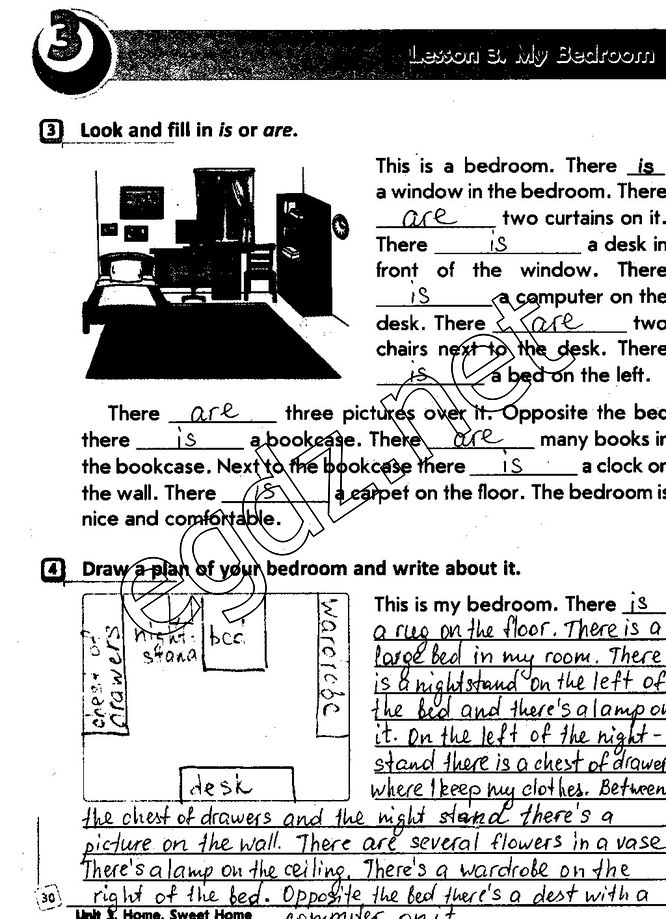 3
Lesson 3. My Bedroom
3 Look and fill in is or are.
This is a bedroom. There is
a window in the bedroom. There
are two curtains on it.
There is a desk in
front of the window. There
is a computer on the
desk. There are two
chairs next to the desk. There
is a bed on the left.
There are three pictures over it. Opposite the bed
there is a bookcase. There are many books in
the bookcase. Next to the bookcase there is a clock on
the wall. There is a carpet on the floor. The bedroom is
nice and comfortable.
egdz.net
4 Draw a plan of your bedroom and write about it.
chest of
drawers
night-
stand
bed
wardrobe
desk
This is my bedroom. There is
a rug on the floor. There is a
large bed in my room. There
is a nightstand on the left of
the bed and there's a lamp on
it. On the left of the night-
stand there is a chest of drawer
where I keep my clothes. Between
the chest of drawers and the night stand there's a
picture on the wall. There are several flowers in a vase
There's a lamp on the ceiling. There's a wardrobe on the
right of the bed. Opposite the bed there's a dest with a
computer on it
30
Unit 3. Home, Sweet Home